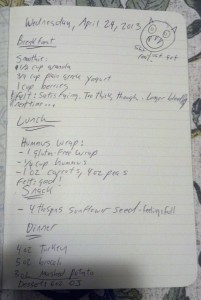 Wednesday, April 24, 2013
Breakfast
Smoothie:
1/2 cup granola
3/4 cup plain greek yogurt
1 cup berries
Felt: Satisfying. Too Thick, though. Longer blend
next time...
Lunch
Hummus Wrap:
- 1 gluten-free wrap
- 1/4 cup hummus
- 1 oz. carrots, 2 oz peas
Felt: good!
Snack
- 4 tbsps sunflower seeds - feeling full
Dinner
4oz Turkey
5oz
3oz mashed potato
Dessert: 6oz OJ